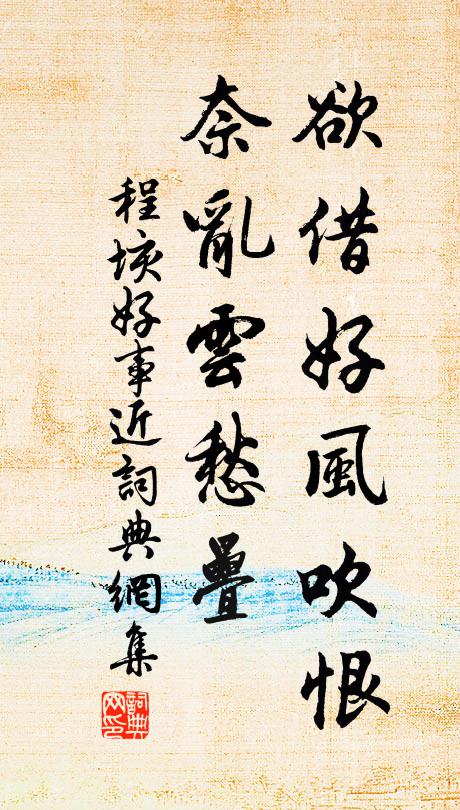 欲借好風吹恨
奈亂雲愁疊
程垓好事近詞典網集
詞典網印